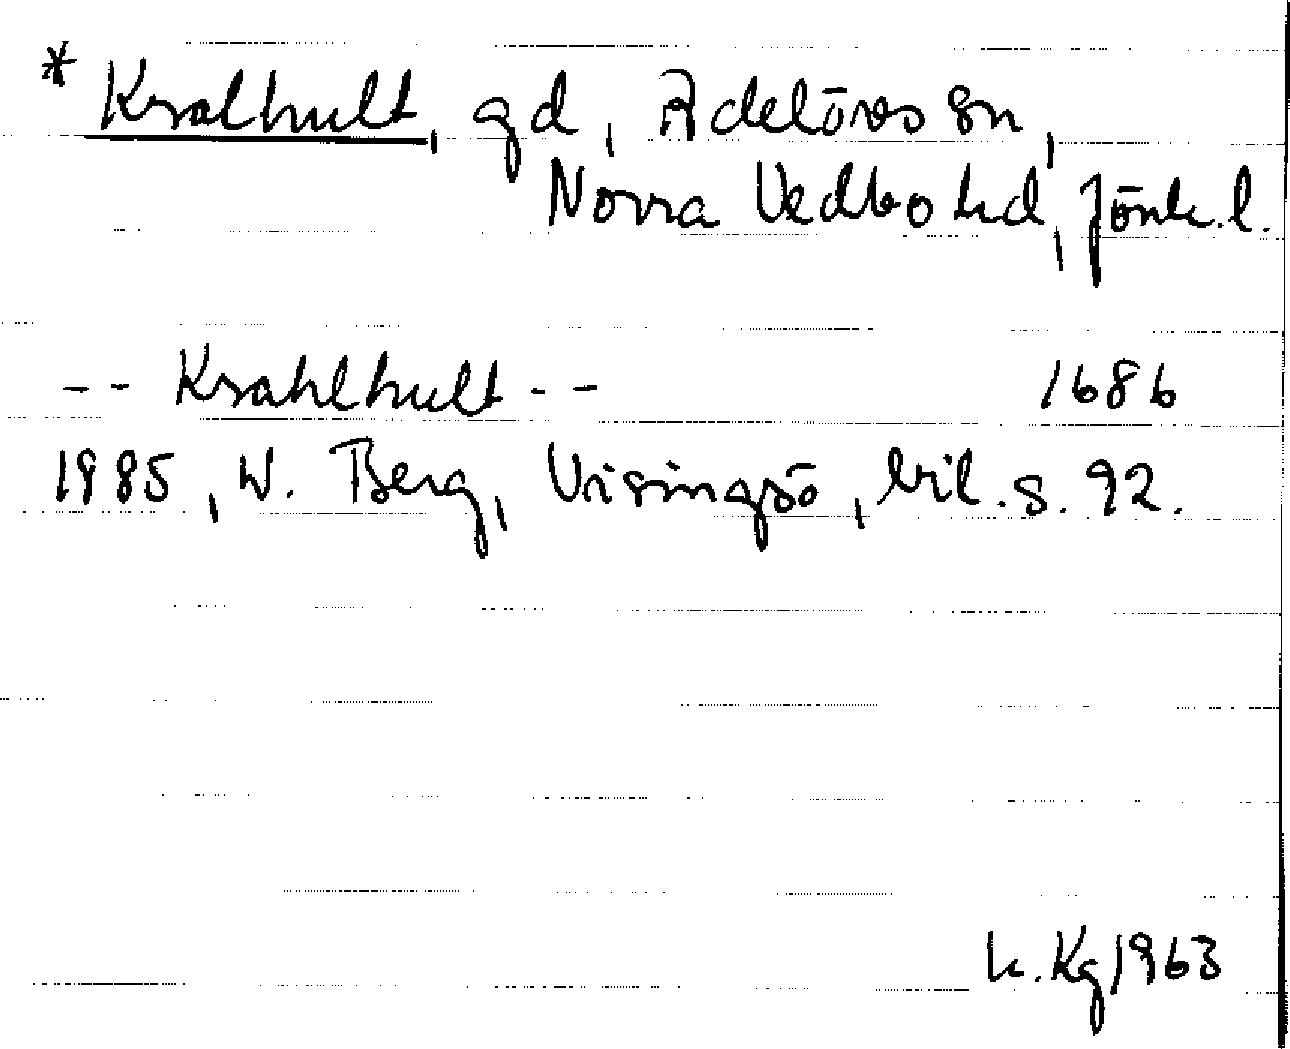 * Kralhult, gd, Adelövs sn,
Norra Vedbo hd, Jönk. l.
-- Krahlhult -- 1686
1985, W. Berg, Visingsö, bil. s. 92.
k. Kg 1963